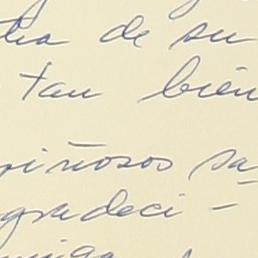 de su
tan bién
riñosos sa-
gradeci-